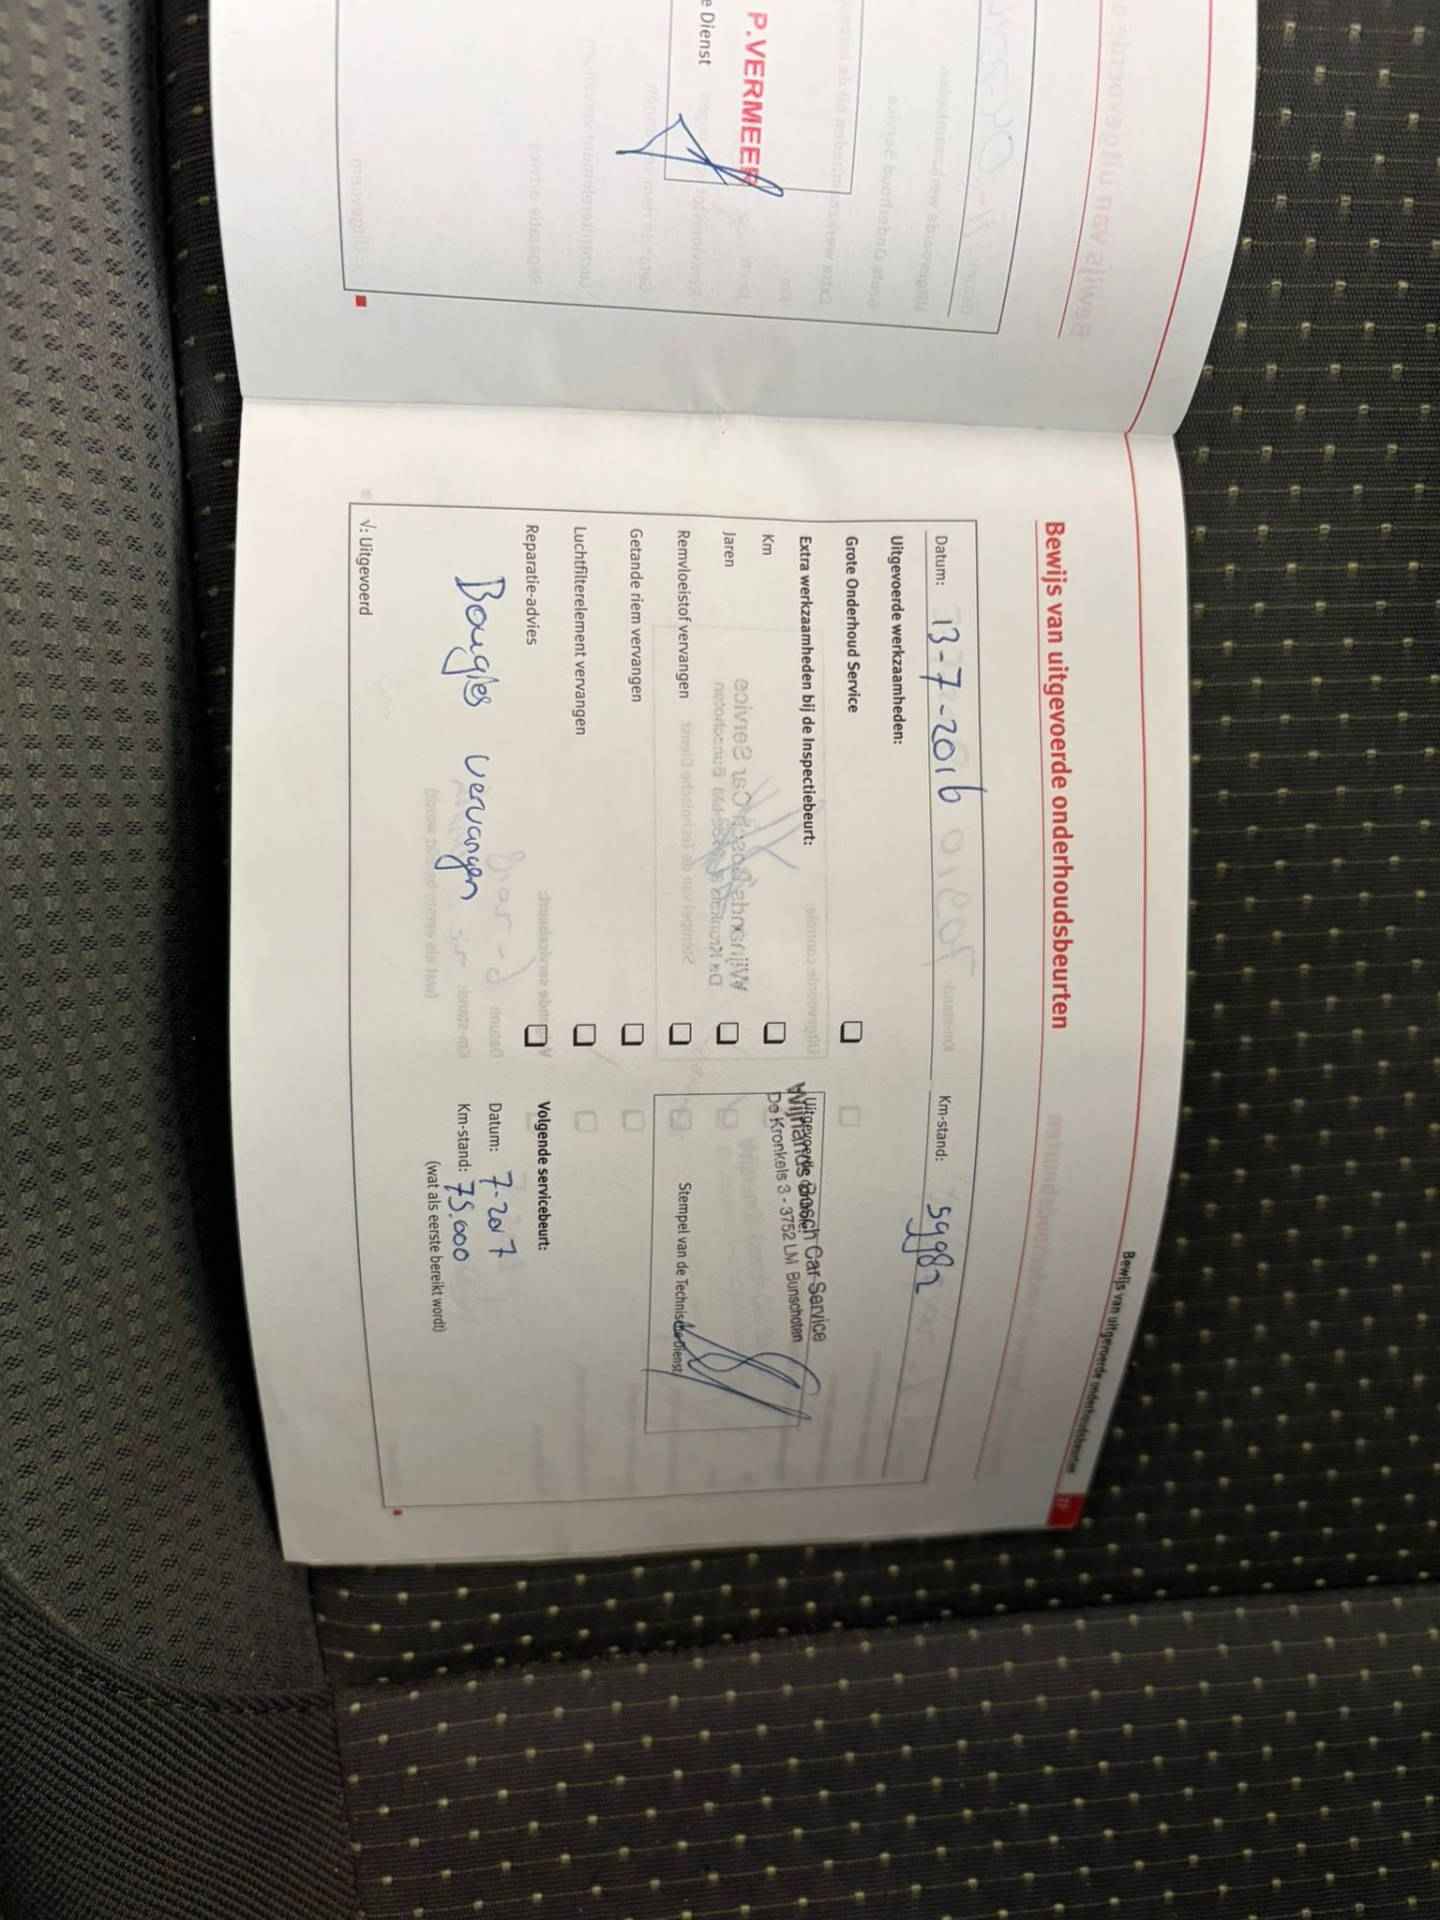 P.VERMEER
e Dienst
Bewijs van uitgevoerde onderhoudsbeurten
Bewijs van uitgevoerde onderhoudsbeurten
Datum: 13-7-2016
Km-stand: 59982
Uitgevoerde werkzaamheden:
Grote Onderhoud Service
Extra werkzaamheden bij de Inspectiebeurt:
Km
Jaren
Remvloeistof vervangen
Getande riem vervangen
Luchtfilterelement vervangen
Reparatie-advies
Bougies vervangen
√: Uitgevoerd
Wijnands Bosch Car Service
De Kronkels 3 - 3752 LM Bunschoten
Stempel van de Technische Dienst
Volgende servicebeurt:
Datum: 7-2017
Km-stand: 75.000
(wat als eerste bereikt wordt)